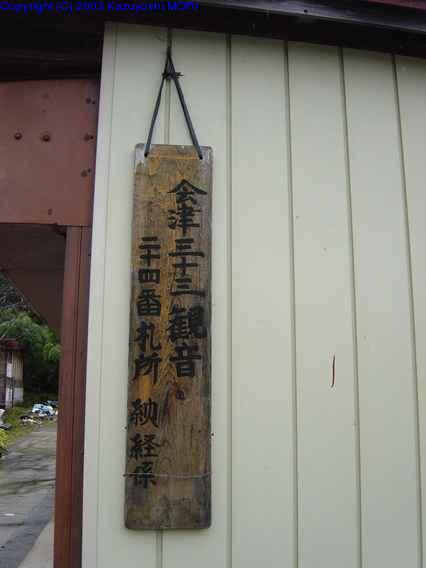 Copyright (C) 2003 Kazuyoshi MORI
会津三十三観音
二十四番札所 納経係